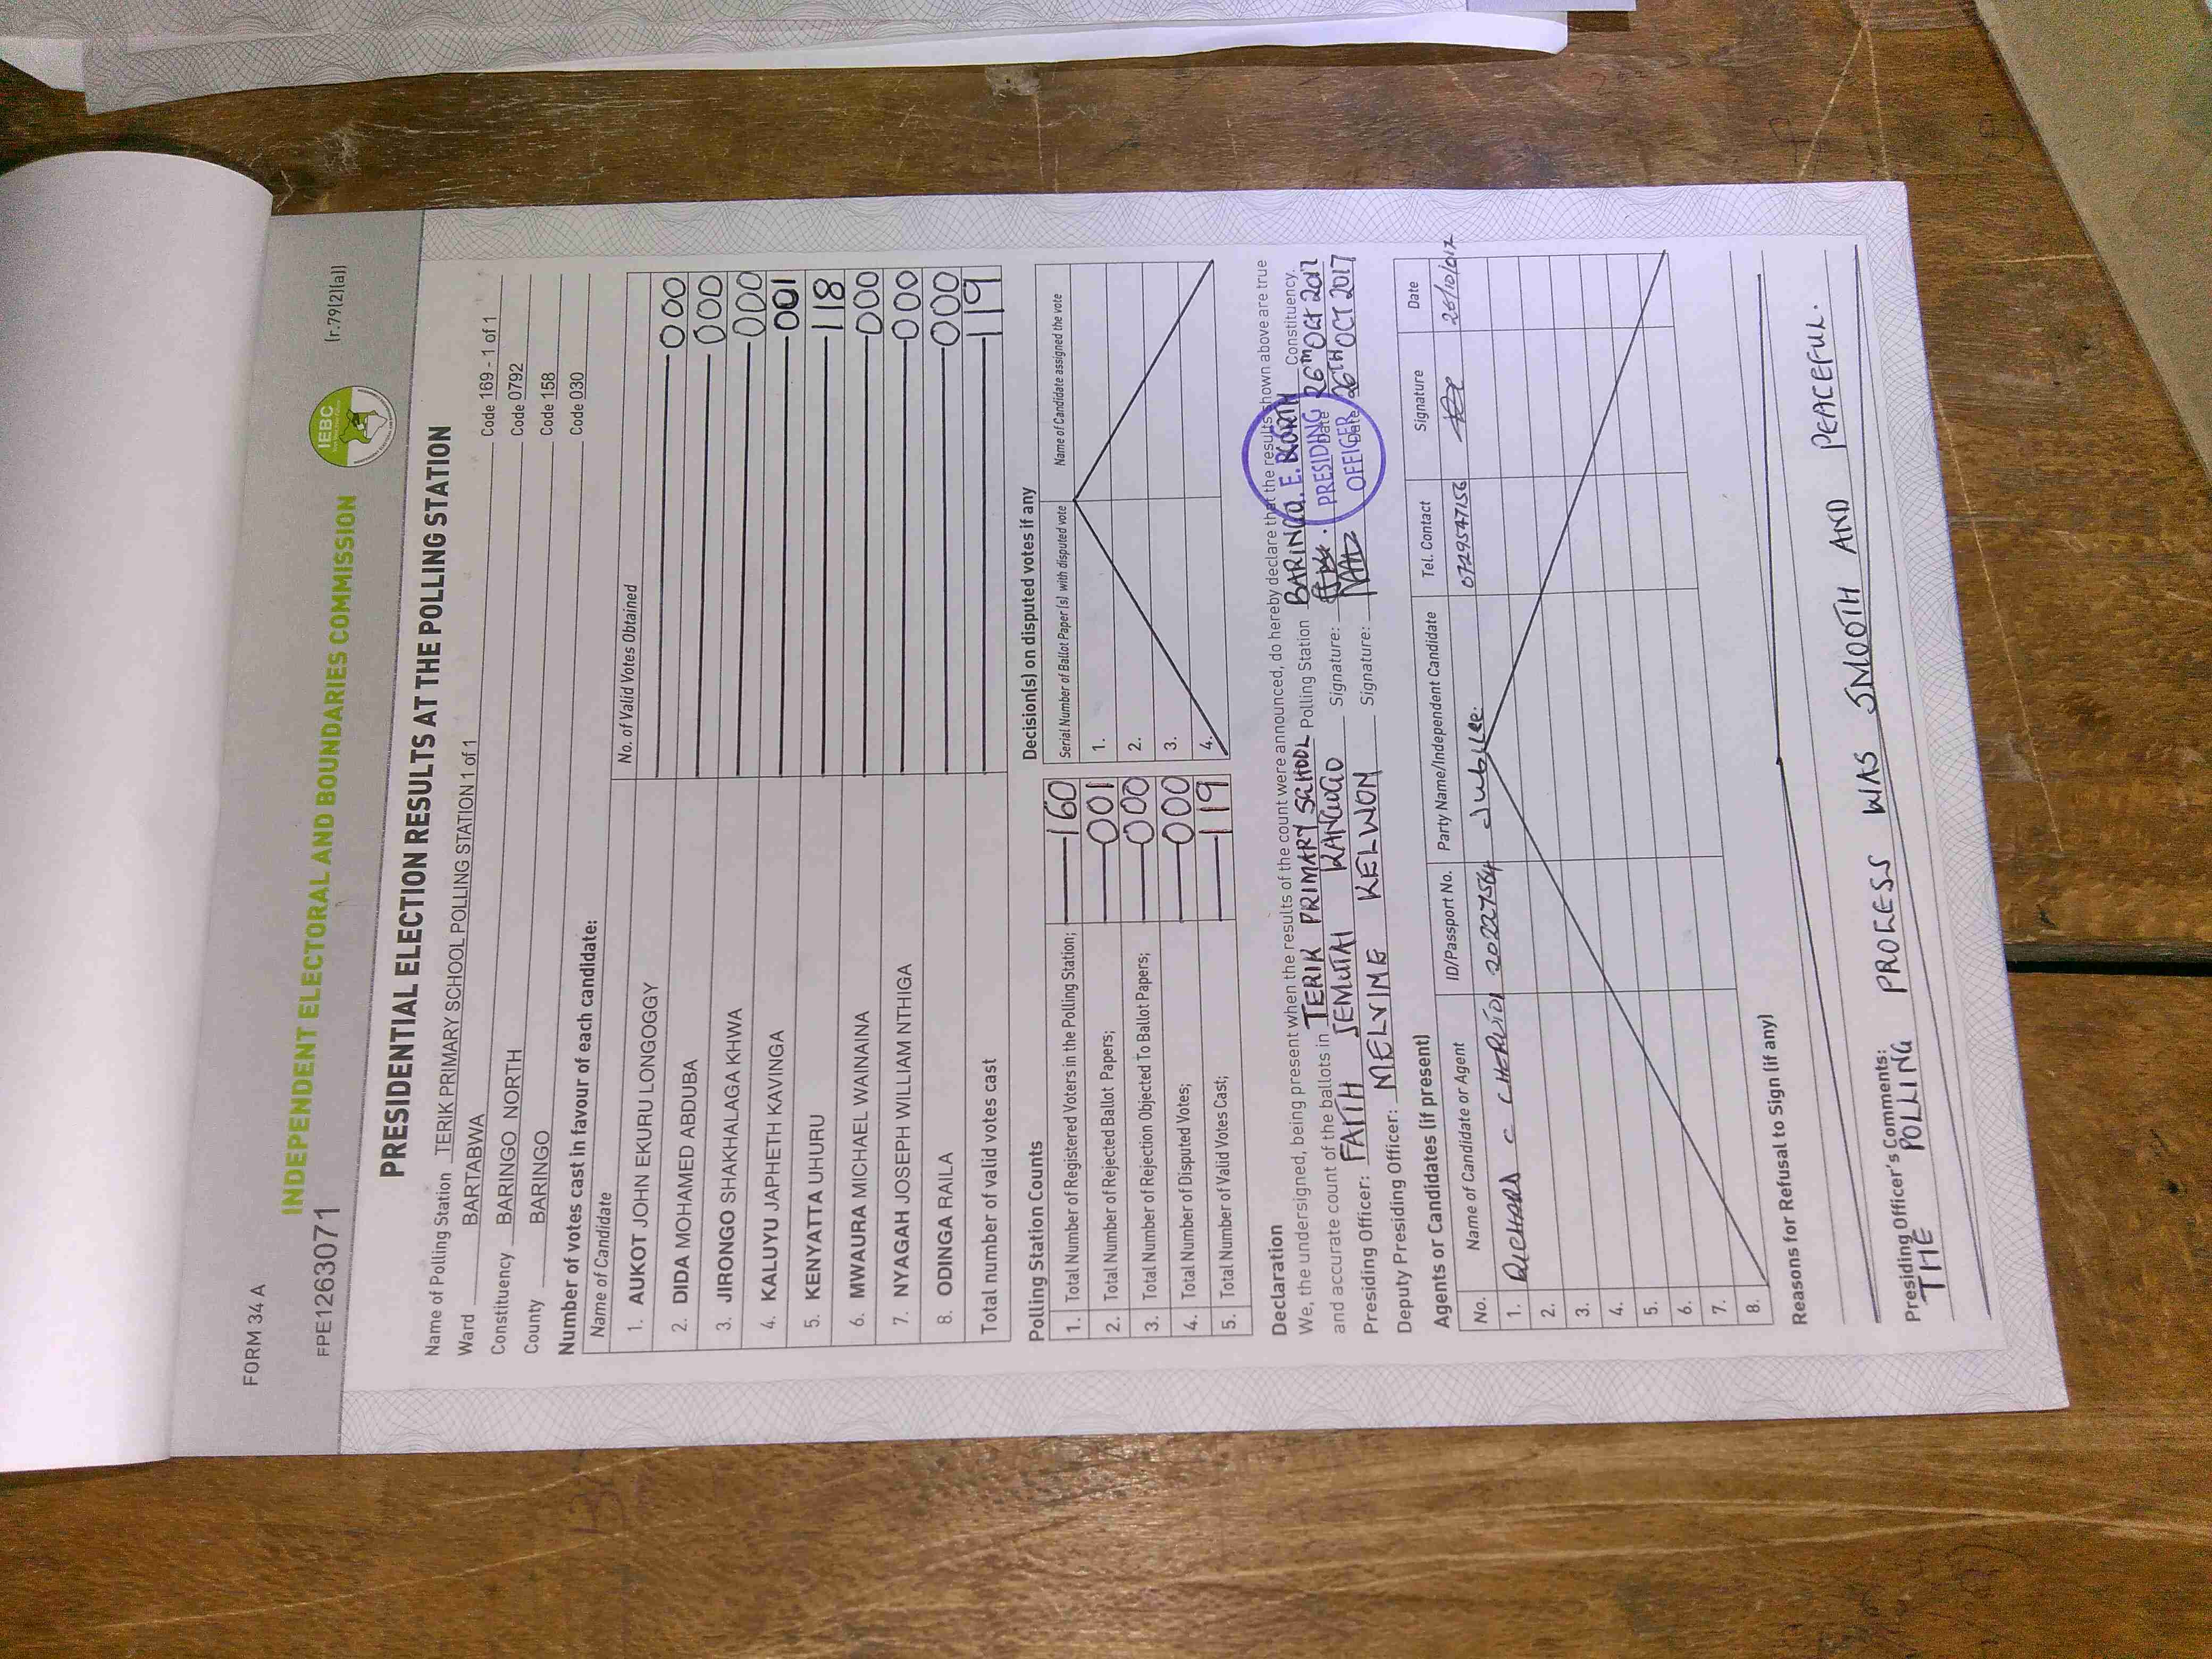 FORM 34 A
(r.79(2)(a))
INDEPENDENT ELECTORAL AND BOUNDARIES COMMISSION
IEBC
FPE1263071
PRESIDENTIAL ELECTION RESULTS AT THE POLLING STATION
Name of Polling Station TERIK PRIMARY SCHOOL POLLING STATION 1 of 1 Code 169 - 1 of 1
Ward BARTABWA Code 0792
Constituency BARINGO NORTH Code 158
County BARINGO Code 030
Number of votes cast in favour of each candidate:
Name of Candidate No. of Valid Votes Obtained
1. AUKOT JOHN EKURU LONGOGGY 000
2. DIDA MOHAMED ABDUBA 000
3. JIRONGO SHAKHALAGA KHWA 000
4. KALUYU JAPHETH KAVINGA 001
5. KENYATTA UHURU 118
6. MWAURA MICHAEL WAINAINA 000
7. NYAGAH JOSEPH WILLIAM NTHIGA 000
8. ODINGA RAILA 000
Total number of valid votes cast 119
Polling Station Counts
1. Total Number of Registered Voters in the Polling Station; 160
2. Total Number of Rejected Ballot Papers; 001
3. Total Number of Rejection Objected To Ballot Papers; 000
4. Total Number of Disputed Votes; 000
5. Total Number of Valid Votes Cast; 119
Decision(s) on disputed votes if any
Serial Number of Ballot Paper (s) with disputed vote Name of Candidate assigned the vote
1.
2.
3.
4.
Declaration
We, the undersigned, being present when the results of the count were announced, do hereby declare that the results shown above are true
and accurate count of the ballots in TERIK PRIMARY SCHOOL Polling Station BARINGO Constituency.
Presiding Officer: FAITH JEMUTAI Signature: Date 26TH OCT 2017
Deputy Presiding Officer: MELVINE KELWON Signature: Date 26TH OCT 2017
PRESIDING
OFFICER
Agents or Candidates (if present)
No. Name of Candidate or Agent ID/Passport No. Party Name/Independent Candidate Tel. Contact Signature Date
1. RICHARD C 20227564 Jubilee. 0729547156 26/10/017
2.
3.
4.
5.
6.
7.
8.
Reasons for Refusal to Sign (if any)
Presiding Officer's Comments:
THE POLLING PROCESS WAS SMOOTH AND PEACEFUL.